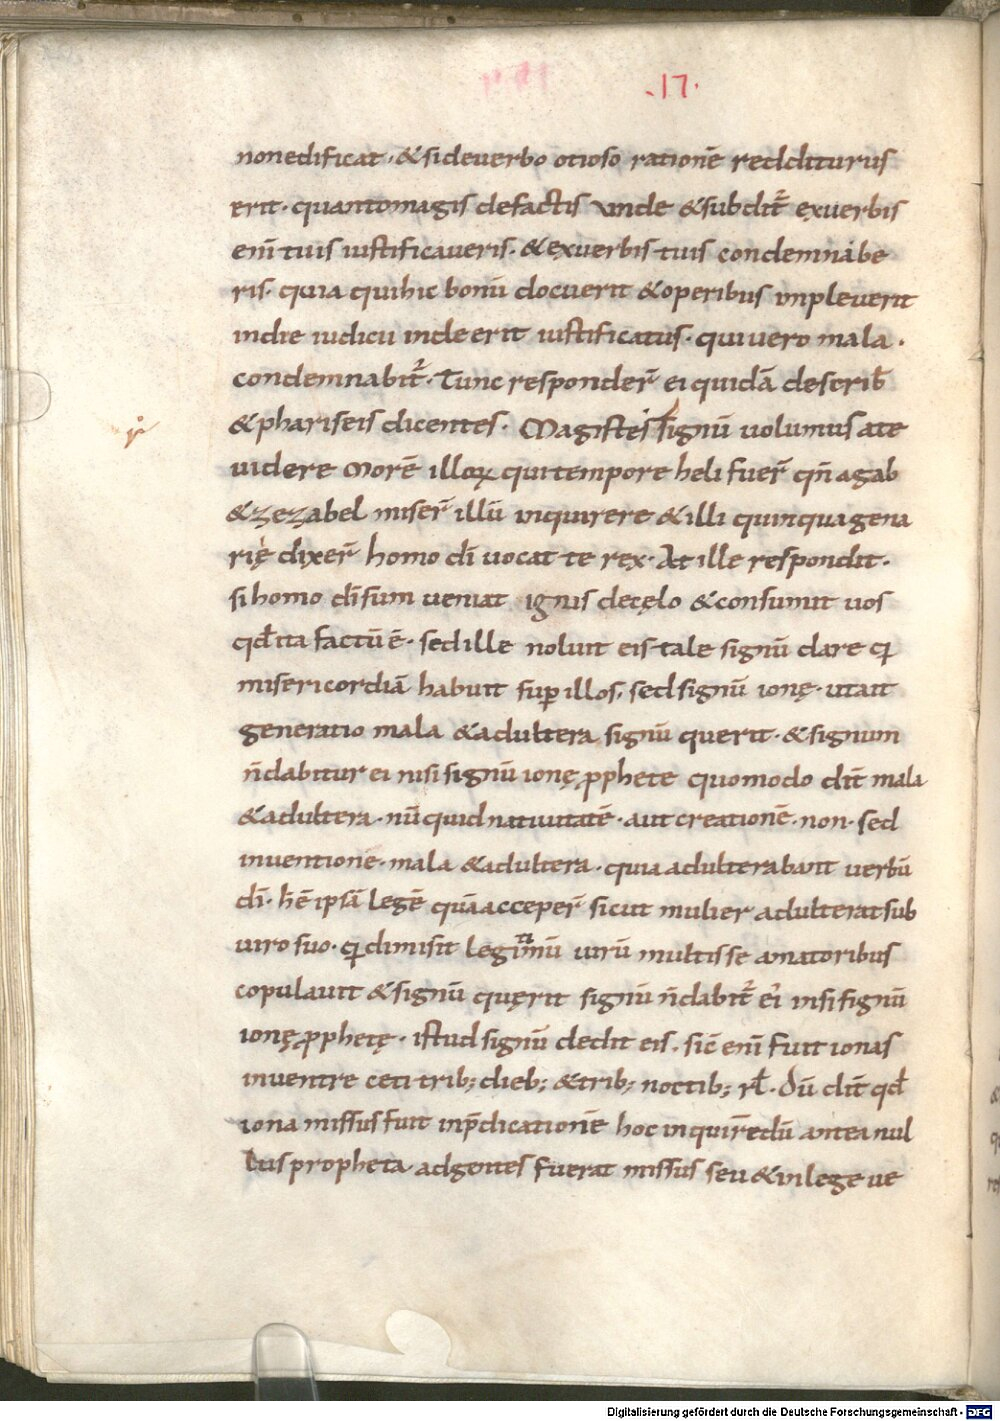 .17.
non edificat · & si de uerbo otioso rationē reddditurus
erit · quanto magis de factis unde & subdit̄ ex uerbis
enī tuis iustificaueris · & ęx uerbis tuis condemnabe
ris · quia qui hic bonū docuerit & operibus impleuerit
in die iudicii inde erit iustificatus · qui uero mala ·
condemnabit̄ · Tunc responder̄ ei quidā de scrib̄
& phariseis dicentes · Magister signū uolumus a te
uidere morē illoꝝ qui tempore heli fuer̄ qn̄ agab
& zezabel miser̄ illū inquirere & illi quinquagena
rię dixer̄ homo dī uocat te rex · At ille respondit ·
si homo dī sum ueniat ignis de cęlo & consumit uos
qđ ita factū ē · sed ille noluit eis tale signū dare q
misericordiā habuit sup illos, sed signū ionę · ut ait
generatio mala & adultera signū querit · & signum
n̄ dabitur ei nisi signū ionę pphete quomodo dix̄ mala
& adultera · nūquid natiuitatē · aut creationē · non · sed
inuentione · mala & adultera · quia adulterabant uerbū
dī · hē ipsā legē quā acceper̄ sicut mulier adulterat sub
uiro suo · q dimisit legitimū uirū multis se amatoribus
copulauit & signū quęrit signū n̄ dabit̄ ei nisi signū
ionę pphetę · istud signū dedit eis · sic̄ enī fuit ionas
in uentre ceti trib; dieb; & trib; noctib; rł · Dū dix̄ qđ
iona missus fuit in p̄dicationē hoc inquirēdū antea nul
lus propheta ad gentes fuerat missus seu & in lege ue
Digitalisierung gefördert durch die Deutsche Forschungsgemeinschaft - DFG